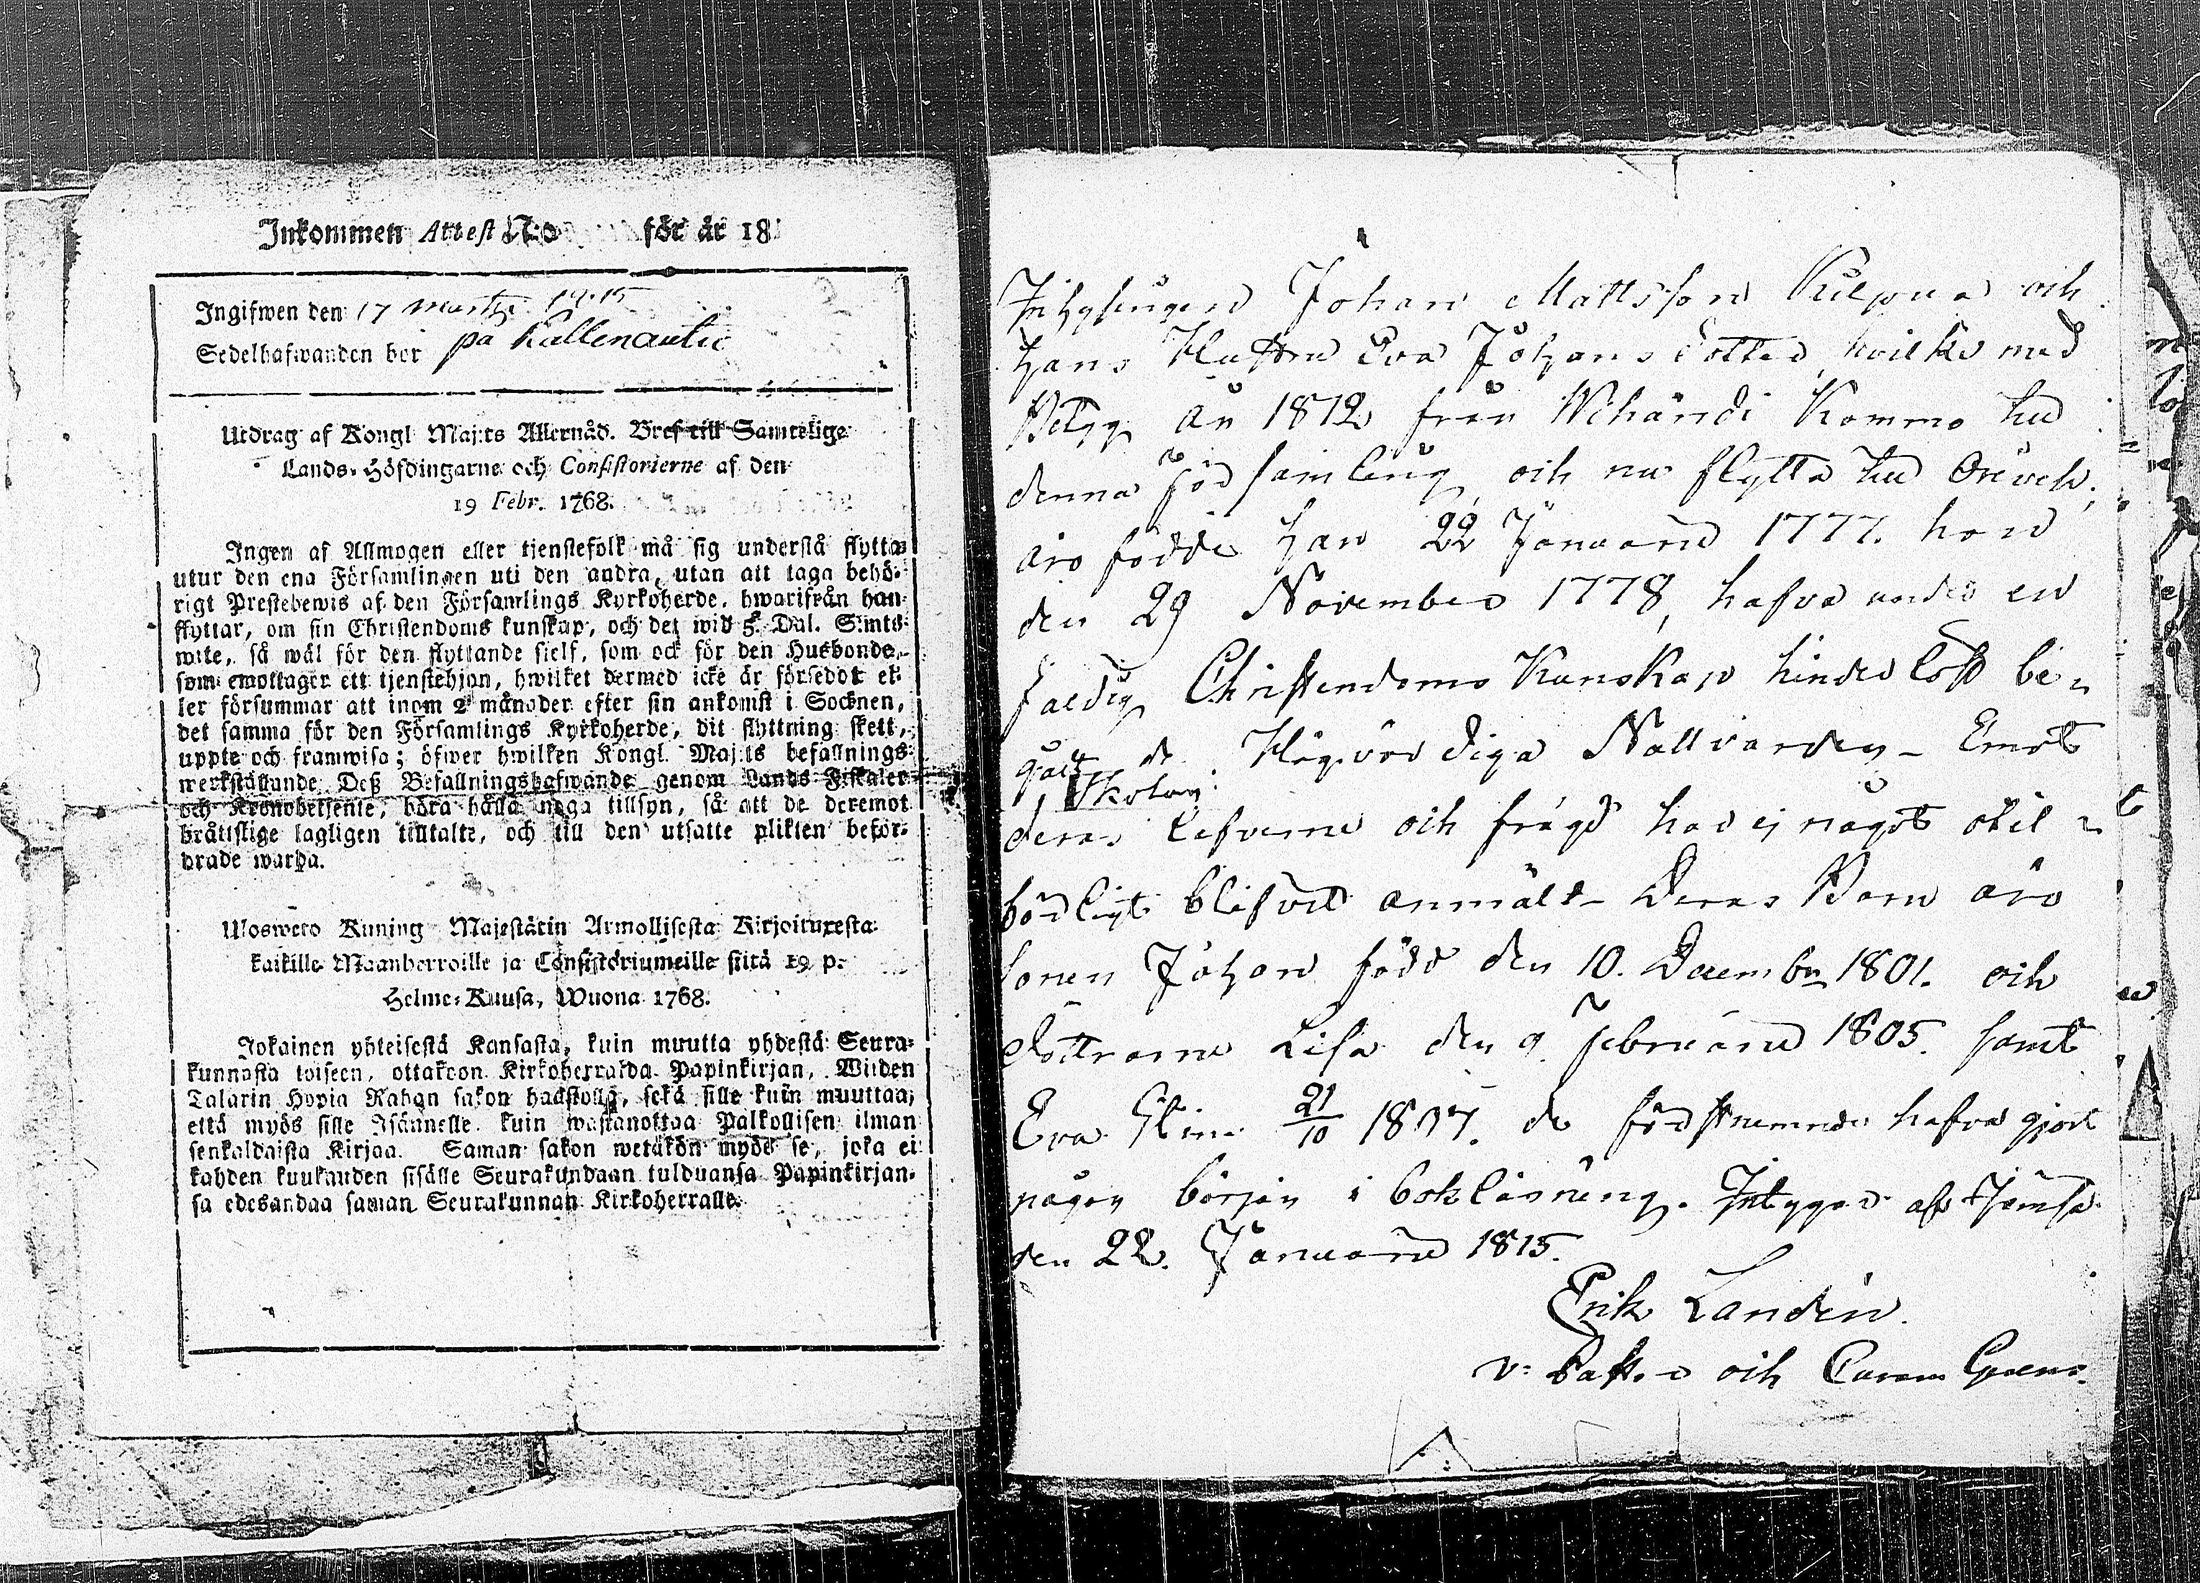 Inkommen Attest N:o för år 18
Ingifwen den 17 Martji 1815
Sedelhafwanden bor på Kallenautio
Utdrag af Kongl Maj:ts Allernåd. Bref till Samtelige
Lands-Höfdingarne och Consistorierne af den
19 Febr. 1768.
Ingen af Allmogen eller tjenstefolk må sig understå flytta
utur den ena Församlingen uti den andra, utan att taga behö-
rigt Prestebewis af den Församlings Kyrkoherde, hwarifrån han
flyttar, om sin Christendoms kunskap, och det wid 5. Dal. S:mts
wite, så wäl för den flyttande sielf, som ock för den Husbonde,
som emottager ett tjenstehjon, hwilket dermed icke är försedot el-
ler försummar att inom 2 månader efter sin ankomst i Socknen,
det samma för den Församlings Kyrkoherde, dit flyttning skett,
uppte och framwisa; öfwer hwilken Kongl. Maj:ts befallnings
werkställande Deß Befallningshafwande genom Lands-Fiskaler
och Kronobetjente, böra hålla noga tillsyn, så att de deremot
bråttslige lagligen tilltalte, och till den utsatte plikten beför-
drade warda.
Uloswero Kuning Majestätin Armollisesta Kirjoituxesta
kaikille Maanherroille ja Consistoriumeille siitä 19 p.
Helme-Kuusa, Wuona 1768.
Jokainen yhteisestä Kansasta, kuin muutta yhdestä Seura-
kunnasta toiseen, ottakoon Kirkoherralda Papinkirjan, Wiiden
Talarin Hopia Rahan sakon haastolla, sekä sille kuin muuttaa,
että myös sille Isännelle kuin wastanottaa Palkollisen ilman
senkaldaista Kirjaa. Saman sakon wetäkön myös se, joka ei
kahden kuukauden sisälle Seurakundaan tulduansa Papinkirjan-
sa edesandaa saman Seurakunnan Kirkoherralle.
Inhysingen Johan Mattsson Kulpua och
hans Hustru Eva Johans dotter, hvilke med
Betyg än 1812 från Kommo till
denna församling och nu flytta till Orivesi,
äro födde han 22 Januarii 1777. hon
den 29 November 1778, hafva enden en
faldig Christendoms Kunskap hinderlöst be-
gått de Högvördiga Nattvarden - Emot
Skolan
deras lefverne och frägd har ej något otil-
börligt blifvit anmält - Deras Barn äro
sonen Johan född den 10. December 1801. och
döttrarne Lisa den 9. februarii 1805. samt
Eva Stina 21/10 1807. de förstnemnde hafva gjort
någon början i bokläsning. Intygar af Jämsä
den 22. Januarii 1815.
Erik Landén.
v: Pastor och